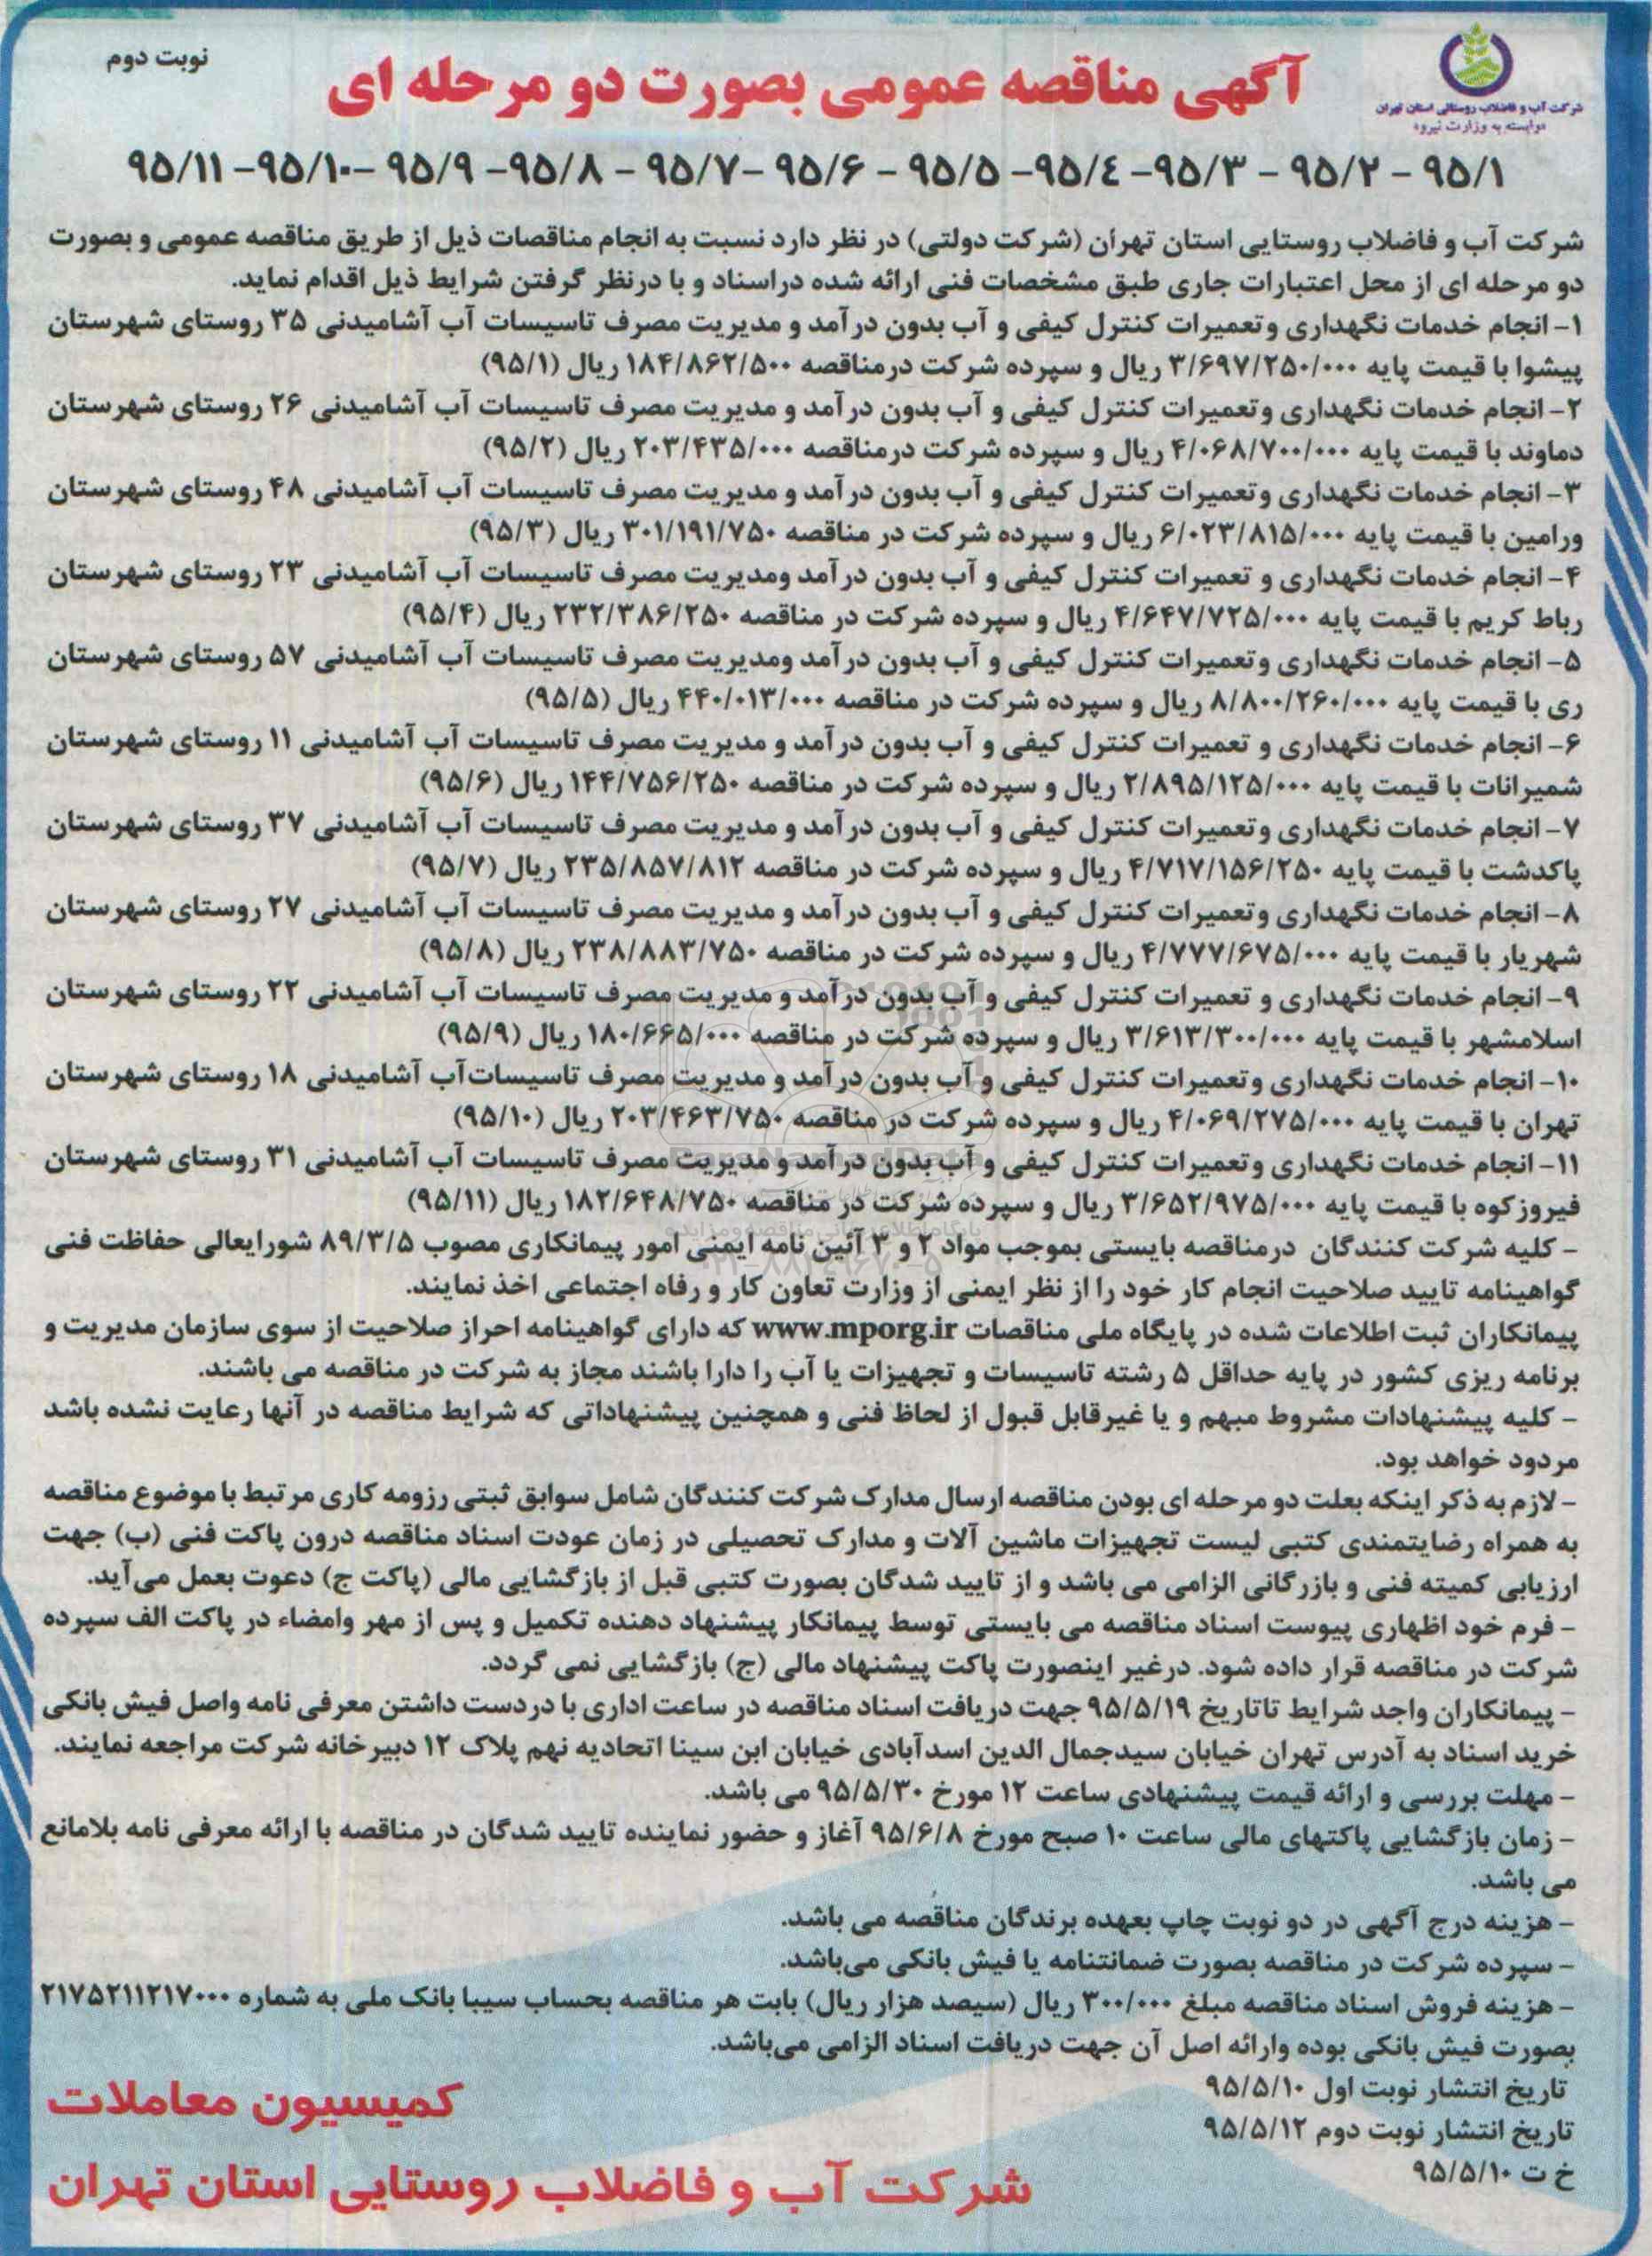 شرکت آب و فاضلاب روستایی استان تهران
«وابسته به وزارت نیرو»
آگهی مناقصه عمومی بصورت دو مرحله ای
نوبت دوم
۹۵/۱ - ۹۵/۲ - ۹۵/۳ -۹۵/٤ -۹۵/۵ - ۹۵/۶ -۹۵/۷ - ۹۵/۸ -۹۵/۹ -۹۵/۱۰ -۹۵/۱۱
شرکت آب و فاضلاب روستایی استان تهران (شرکت دولتی) در نظر دارد نسبت به انجام مناقصات ذیل از طریق مناقصه عمومی و بصورت
دو مرحله ای از محل اعتبارات جاری طبق مشخصات فنی ارائه شده دراسناد و با درنظر گرفتن شرایط ذیل اقدام نماید.
۱- انجام خدمات نگهداری وتعمیرات کنترل کیفی و آب بدون درآمد و مدیریت مصرف تاسیسات آب آشامیدنی ۳۵ روستای شهرستان
پیشوا با قیمت پایه ۳/۶۹۷/۲۵۰/۰۰۰ ریال و سپرده شرکت درمناقصه ۱۸۴/۸۶۲/۵۰۰ ریال (۹۵/۱)
۲- انجام خدمات نگهداری وتعمیرات کنترل کیفی و آب بدون درآمد و مدیریت مصرف تاسیسات آب آشامیدنی ۲۶ روستای شهرستان
دماوند با قیمت پایه ۴/۰۶۸/۷۰۰/۰۰۰ ریال و سپرده شرکت درمناقصه ۲۰۳/۴۳۵/۰۰۰ ریال (۹۵/۲)
۳- انجام خدمات نگهداری وتعمیرات کنترل کیفی و آب بدون درآمد و مدیریت مصرف تاسیسات آب آشامیدنی ۴۸ روستای شهرستان
ورامین با قیمت پایه ۶/۰۲۳/۸۱۵/۰۰۰ ریال و سپرده شرکت در مناقصه ۳۰۱/۱۹۱/۷۵۰ ریال (۹۵/۳)
۴- انجام خدمات نگهداری و تعمیرات کنترل کیفی و آب بدون درآمد ومدیریت مصرف تاسیسات آب آشامیدنی ۲۳ روستای شهرستان
رباط کریم با قیمت پایه ۴/۶۴۷/۷۲۵/۰۰۰ ریال و سپرده شرکت در مناقصه ۲۳۲/۳۸۶/۲۵۰ ریال (۹۵/۴)
۵- انجام خدمات نگهداری وتعمیرات کنترل کیفی و آب بدون درآمد ومدیریت مصرف تاسیسات آب آشامیدنی ۵۷ روستای شهرستان
ری با قیمت پایه ۸/۸۰۰/۲۶۰/۰۰۰ ریال و سپرده شرکت در مناقصه ۴۴۰/۰۱۳/۰۰۰ ریال (۹۵/۵)
۶- انجام خدمات نگهداری و تعمیرات کنترل کیفی و آب بدون درآمد و مدیریت مصرف تاسیسات آب آشامیدنی ۱۱ روستای شهرستان
شمیرانات با قیمت پایه ۲/۸۹۵/۱۲۵/۰۰۰ ریال و سپرده شرکت در مناقصه ۱۴۴/۷۵۶/۲۵۰ ریال (۹۵/۶)
۷- انجام خدمات نگهداری وتعمیرات کنترل کیفی و آب بدون درآمد و مدیریت مصرف تاسیسات آب آشامیدنی ۳۷ روستای شهرستان
پاکدشت با قیمت پایه ۴/۷۱۷/۱۵۶/۲۵۰ ریال و سپرده شرکت در مناقصه ۲۳۵/۸۵۷/۸۱۲ ریال (۹۵/۷)
۸- انجام خدمات نگهداری وتعمیرات کنترل کیفی و آب بدون درآمد و مدیریت مصرف تاسیسات آب آشامیدنی ۲۷ روستای شهرستان
شهریار با قیمت پایه ۴/۷۷۷/۶۷۵/۰۰۰ ریال و سپرده شرکت در مناقصه ۲۳۸/۸۸۳/۷۵۰ ریال (۹۵/۸)
۹- انجام خدمات نگهداری و تعمیرات کنترل کیفی و آب بدون درآمد و مدیریت مصرف تاسیسات آب آشامیدنی ۲۲ روستای شهرستان
اسلامشهر با قیمت پایه ۳/۶۱۳/۳۰۰/۰۰۰ ریال و سپرده شرکت در مناقصه ۱۸۰/۶۶۵/۰۰۰ ریال (۹۵/۹)
۱۰- انجام خدمات نگهداری وتعمیرات کنترل کیفی و آب بدون درآمد و مدیریت مصرف تاسیسات‌آب آشامیدنی ۱۸ روستای شهرستان
تهران با قیمت پایه ۴/۰۶۹/۲۷۵/۰۰۰ ریال و سپرده شرکت در مناقصه ۲۰۳/۴۶۳/۷۵۰ ریال (۹۵/۱۰)
۱۱- انجام خدمات نگهداری وتعمیرات کنترل کیفی و آب بدون درآمد و مدیریت مصرف تاسیسات آب آشامیدنی ۳۱ روستای شهرستان
فیروزکوه با قیمت پایه ۳/۶۵۲/۹۷۵/۰۰۰ ریال و سپرده شرکت در مناقصه ۱۸۲/۶۴۸/۷۵۰ ریال (۹۵/۱۱)
- کلیه شرکت کنندگان درمناقصه بایستی بموجب مواد ۲ و ۳ آئین نامه ایمنی امور پیمانکاری مصوب ۸۹/۳/۵ شورایعالی حفاظت فنی
گواهینامه تایید صلاحیت انجام کار خود را از نظر ایمنی از وزارت تعاون کار و رفاه اجتماعی اخذ نمایند.
پیمانکاران ثبت اطلاعات شده در پایگاه ملی مناقصات www.mporg.ir که دارای گواهینامه احراز صلاحیت از سوی سازمان مدیریت و
برنامه ریزی کشور در پایه حداقل ۵ رشته تاسیسات و تجهیزات یا آب را دارا باشند مجاز به شرکت در مناقصه می باشند.
- کلیه پیشنهادات مشروط مبهم و یا غیرقابل قبول از لحاظ فنی و همچنین پیشنهاداتی که شرایط مناقصه در آنها رعایت نشده باشد
مردود خواهد بود.
- لازم به ذکر اینکه بعلت دو مرحله ای بودن مناقصه ارسال مدارک شرکت کنندگان شامل سوابق ثبتی رزومه کاری مرتبط با موضوع مناقصه
به همراه رضایتمندی کتبی لیست تجهیزات ماشین آلات و مدارک تحصیلی در زمان عودت اسناد مناقصه درون پاکت فنی (ب) جهت
ارزیابی کمیته فنی و بازرگانی الزامی می باشد و از تایید شدگان بصورت کتبی قبل از بازگشایی مالی (پاکت ج) دعوت بعمل می‌آید.
- فرم خود اظهاری پیوست اسناد مناقصه می بایستی توسط پیمانکار پیشنهاد دهنده تکمیل و پس از مهر وامضاء در پاکت الف سپرده
شرکت در مناقصه قرار داده شود. درغیر اینصورت پاکت پیشنهاد مالی (ج) بازگشایی نمی گردد.
- پیمانکاران واجد شرایط تاتاریخ ۹۵/۵/۱۹ جهت دریافت اسناد مناقصه در ساعت اداری با دردست داشتن معرفی نامه واصل فیش بانکی
خرید اسناد به آدرس تهران خیابان سیدجمال الدین اسدآبادی خیابان ابن سینا اتحادیه نهم پلاک ۱۲ دبیرخانه شرکت مراجعه نمایند.
- مهلت بررسی و ارائه قیمت پیشنهادی ساعت ۱۲ مورخ ۹۵/۵/۳۰ می باشد.
- زمان بازگشایی پاکتهای مالی ساعت ۱۰ صبح مورخ ۹۵/۶/۸ آغاز و حضور نماینده تایید شدگان در مناقصه با ارائه معرفی نامه بلامانع
می باشد.
- هزینه درج آگهی در دو نوبت چاپ بعهده برندگان مناقصه می باشد.
- سپرده شرکت در مناقصه بصورت ضمانتنامه یا فیش بانکی می‌باشد.
- هزینه فروش اسناد مناقصه مبلغ ۳۰۰/۰۰۰ ریال (سیصد هزار ریال) بابت هر مناقصه بحساب سیبا بانک ملی به شماره ۲۱۷۵۲۱۱۲۱۷۰۰۰
بصورت فیش بانکی بوده وارائه اصل آن جهت دریافت اسناد الزامی می‌باشد.
تاریخ انتشار نوبت اول ۹۵/۵/۱۰
تاریخ انتشار نوبت دوم ۹۵/۵/۱۲
خ ت ۹۵/۵/۱۰
کمیسیون معاملات
شرکت آب و فاضلاب روستایی استان تهران